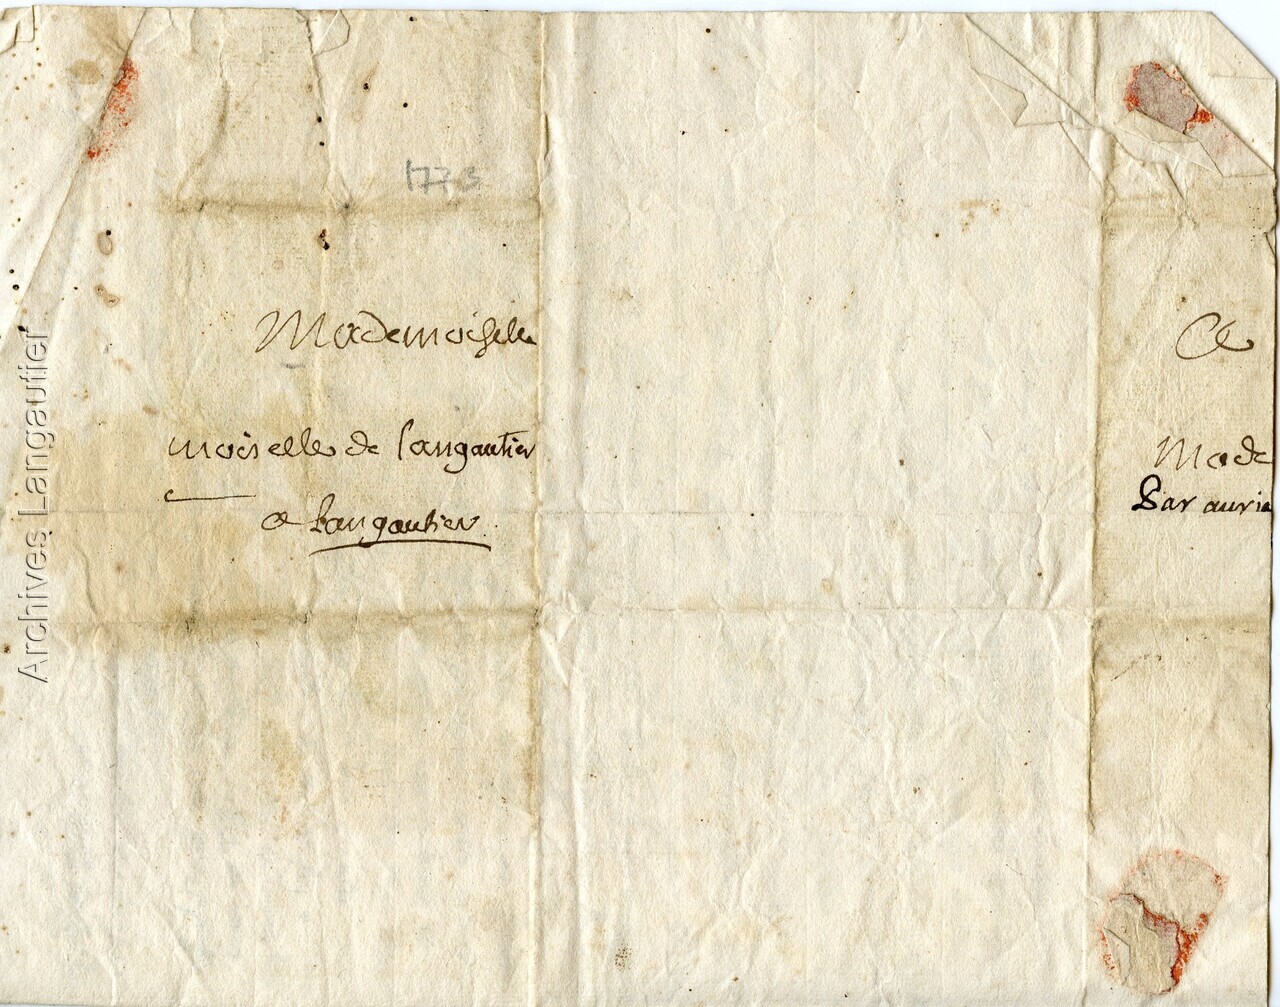 1773
Mademoiselle
moiselle de langautier
a langautier
A
Made
Par auria
Archives Langautier